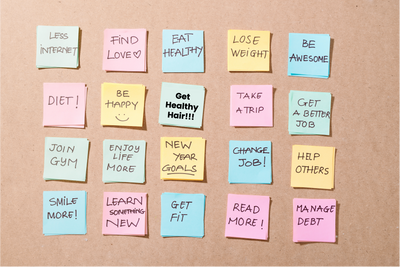 LESS
INTERNET
FIND
LOVE♡
EAT
HEALTHY
LOSE
WEIGHT
BE
AWESOME
DIET!
BE
HAPPY
Get
Healthy
Hair!!!
TAKE
A TRIP
GET
A BETTER
JOB
JOIN
GYM
ENJOY
LIFE
MORE
NEW
YEAR
GOALS
CHANGE
JOB!
HELP
OTHERS
SMILE
MORE!
LEARN
SOMETHING
NEW
GET
FiT
READ
MORE!
MANAGE
DEBT